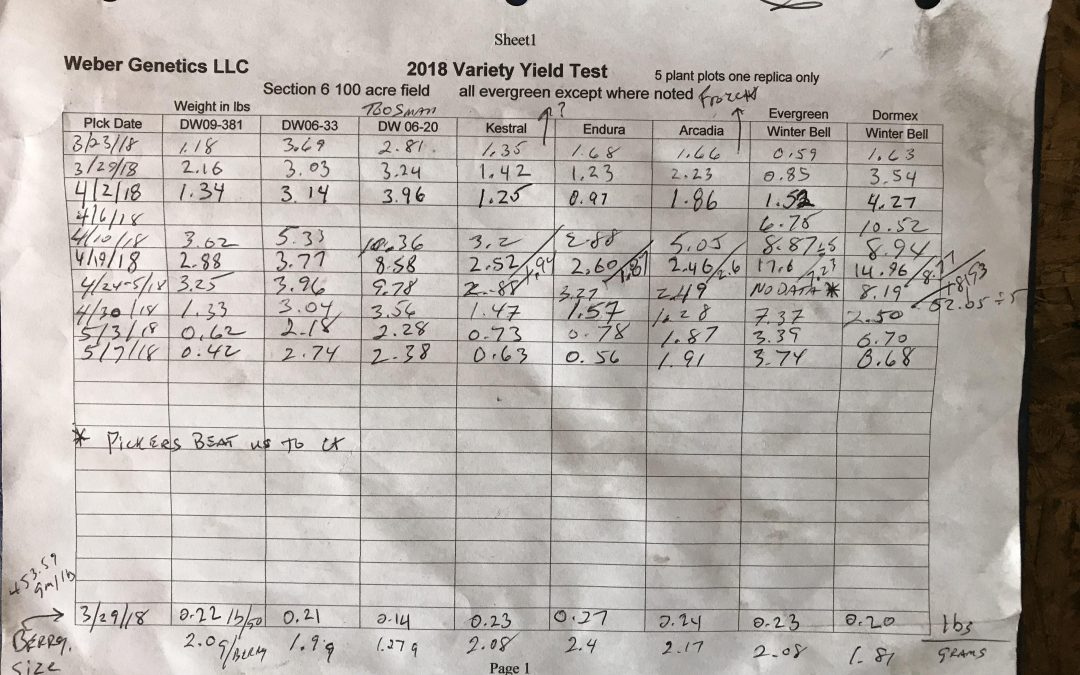 Sheet1
Weber Genetics LLC
2018 Variety Yield Test
5 plant plots one replica only
Section 6 100 acre field all evergreen except where noted
TBOSMAN ?
Weight in lbs Evergreen Dormex
PIck Date DW09-381 DW06-33 DW 06-20 Kestral Endura Arcadia Winter Bell Winter Bell
3/23/18 1.18 3.69 2.81 1.35 1.68 1.66 0.59 1.63
3/29/18 2.16 3.03 3.24 1.42 1.23 2.23 0.85 3.54
4/2/18 1.34 3.14 3.96 1.25 0.97 1.86 1.52 4.27
4/6/18 6.75 10.52
4/10/18 3.62 5.33 10.36 3.2 2.88 5.05 8.87 8.94
4/19/18 2.88 3.77 8.58 2.52 2.60 2.46 17.6 14.96
4/24-5/18 3.25 3.96 9.78 2.88 3.27 2.49 NO DATA * 8.19
4/30/18 1.33 3.04 3.56 1.47 1.57 1.28 7.37 2.50
5/3/18 0.62 2.18 2.28 0.73 0.78 1.87 3.39 6.70
5/7/18 0.42 2.74 2.38 0.63 0.56 1.91 3.74 8.68
* PICKERS BEAT US TO IT
453.59
gm/lb
→ 3/29/18 0.22 lb/50 0.21 0.14 0.23 0.27 0.24 0.23 0.20 lbs
BERRY 2.0g/BERRY 1.9g 1.27g 2.08 2.4 2.17 2.08 1.81 GRAMS
Size
Page 1